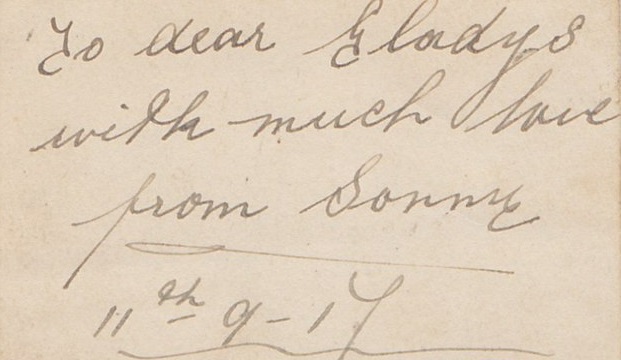 To dear Gladys
with much love
from Sonny
11th 9-17